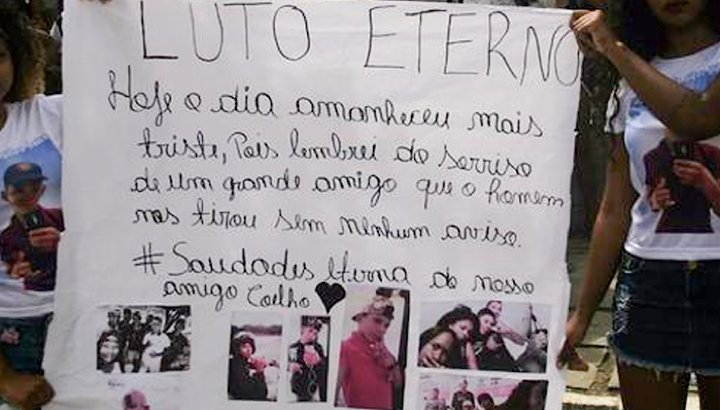 LUTO ETERNO
Hoje o dia amanheceu mais
triste, Pois lembrei do sorriso
de um grande amigo que o homem
nos tirou sem nenhum aviso.
#Saudades Eterna do nosso
amigo Coelho ♥